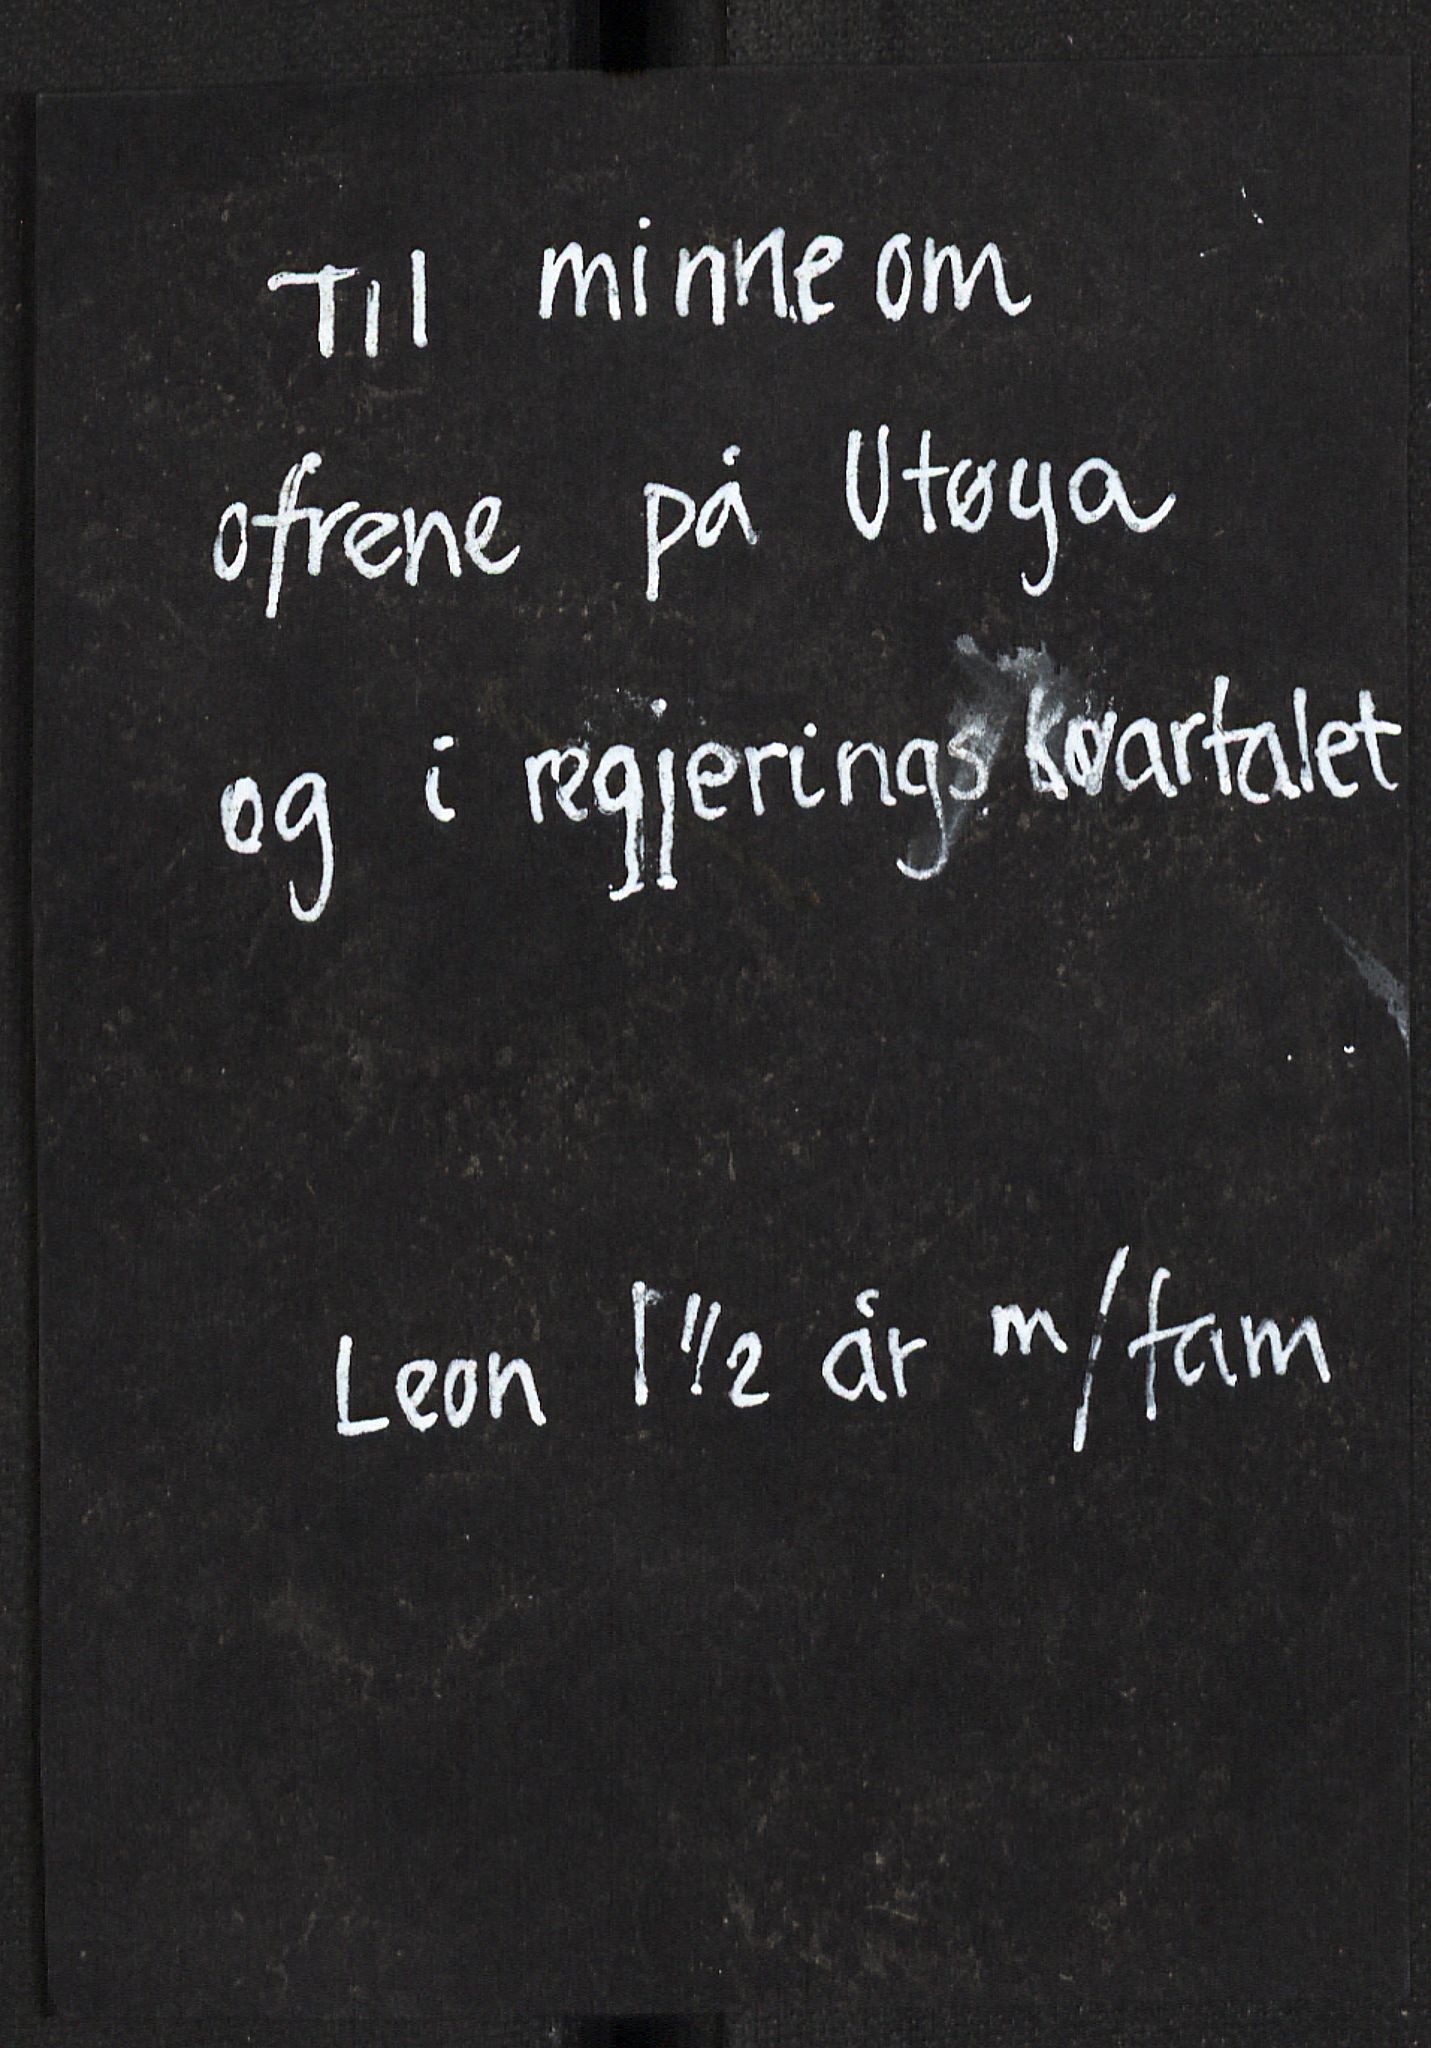 Til minne om
ofrene på Utøya
og i regjeringskvartalet
Leon 1 1/2 år m/fam